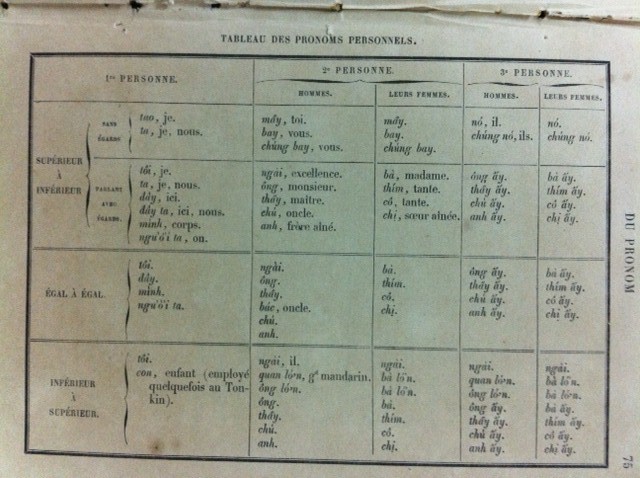 TABLEAU DES PRONOMS PERSONNELS.
1re PERSONNE.
2e PERSONNE.
3e PERSONNE.
HOMMES.
LEURS FEMMES.
HOMMES.
LEURS FEMMES.
SUPÉRIEUR
À
INFÉRIEUR
SANS
ÉGARDS
tao, je.
ta, je, nous.
mầy, toi.
bay, vous.
chúng bay, vous.
mầy.
bay.
chúng bay.
nó, il.
chúng nó, ils.
nó.
chúng nó.
PARLANT
AVEC
ÉGARDS.
tôi, je.
ta, je, nous.
đây, ici.
đây ta, ici, nous.
mình, corps.
người ta, on.
ngài, excellence.
ông, monsieur.
thầy, maître.
chú, oncle.
anh, frère aîné.
bà, madame.
thím, tante.
cô, tante.
chị, sœur aînée.
ông ấy.
thầy ấy.
chú ấy.
anh ấy.
bà ấy.
thím ấy.
cô ấy.
chị ấy.
ÉGAL À ÉGAL.
tôi.
đây.
mình.
người ta.
ngài.
ông.
thầy.
bác, oncle.
chú.
anh.
bà.
thím.
cô.
chị.
ông ấy.
thầy ấy.
chú ấy.
anh ấy.
bà ấy.
thím ấy.
cô ấy.
chị ấy.
INFÉRIEUR
À
SUPÉRIEUR.
tôi.
con, enfant (employé
quelquefois au Ton-
kin).
ngài, il.
quan lớn, gd mandarin.
ông lớn.
ông.
thầy.
chú.
anh.
ngài.
bà lớn.
bà lớn.
bà.
thím.
cô.
chị.
ngài.
quan lớn.
ông lớn.
ông ấy.
thầy ấy.
chú ấy.
anh ấy.
ngài.
bà lớn.
bà lớn.
bà ấy.
thím ấy.
cô ấy.
chị ấy.
DU PRONOM
75